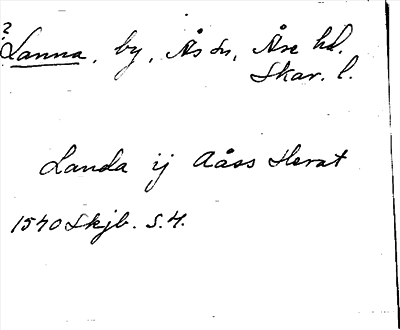 ?
Lanna, by, Ås sn, Åse hd.
Skar. l.
Landa ij Aåss Herat
1540 Skjb. S. 4.